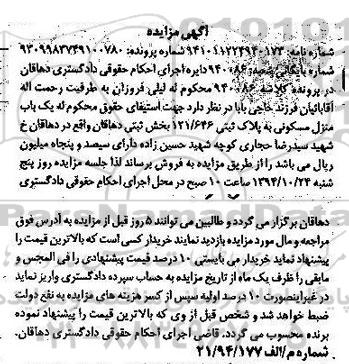 آگهی مزایده
شماره نامه: ۹۴۱۰۴۱۲۲۴۹۴۰۱۷۳ شماره پرونده: ۹۳۰۹۹۸۳۷۴۹۱۰۰۷۸۰
شماره بایگانی شعبه: ۹۴۰۰۸۶ دایره اجرای احکام حقوقی دادگستری دهاقان
در پرونده کلاسه ۹۴۰۰۸۶ محکوم له لیلی فروزان به طرفیت رحمت اله
آقابائیان فرزند حاجی بابا در نظر دارد جهت استیفای حقوق محکوم له یک باب
منزل مسکونی به پلاک ثبتی ۱۲۱/۶۴۶ بخش ثبتی دهاقان واقع در دهاقان خ
شهید سیدرضا حجازی کوچه شهید حسین زاده دارای سیصد و پنجاه میلیون
ریال می باشد را از طریق مزایده به فروش برساند لذا جلسه مزایده روز پنج
شنبه ۱۳۹۴/۱۰/۲۴ ساعت ۱۰ صبح در محل اجرای احکام حقوقی دادگستری
دهاقان برگزار می گردد و طالبین می توانند ۵ روز قبل از مزایده به آدرس فوق
مراجعه و مال مورد مزایده بازدید نمایند خریدار کسی است که بالاترین قیمت را
پیشنهاد نماید خریدار می بایستی ۱۰ درصد قیمت پیشنهادی را فی المجس و
مابقی را ظرف یک ماه از تاریخ مزایده به حساب سپرده دادگستری واریز نماید
در غیراینصورت ۱۰ درصد اولیه سپس از کسر هزینه های مزایده به نفع دولت
ضبط خواهد شد و شخص قبل از وی که بالاترین قیمت را پیشنهاد نموده
برنده محسوب می گردد. قاضی اجرای احکام حقوقی دادگستری دهاقان.
شماره م/الف ۲۱/۹۴/۱۷۷